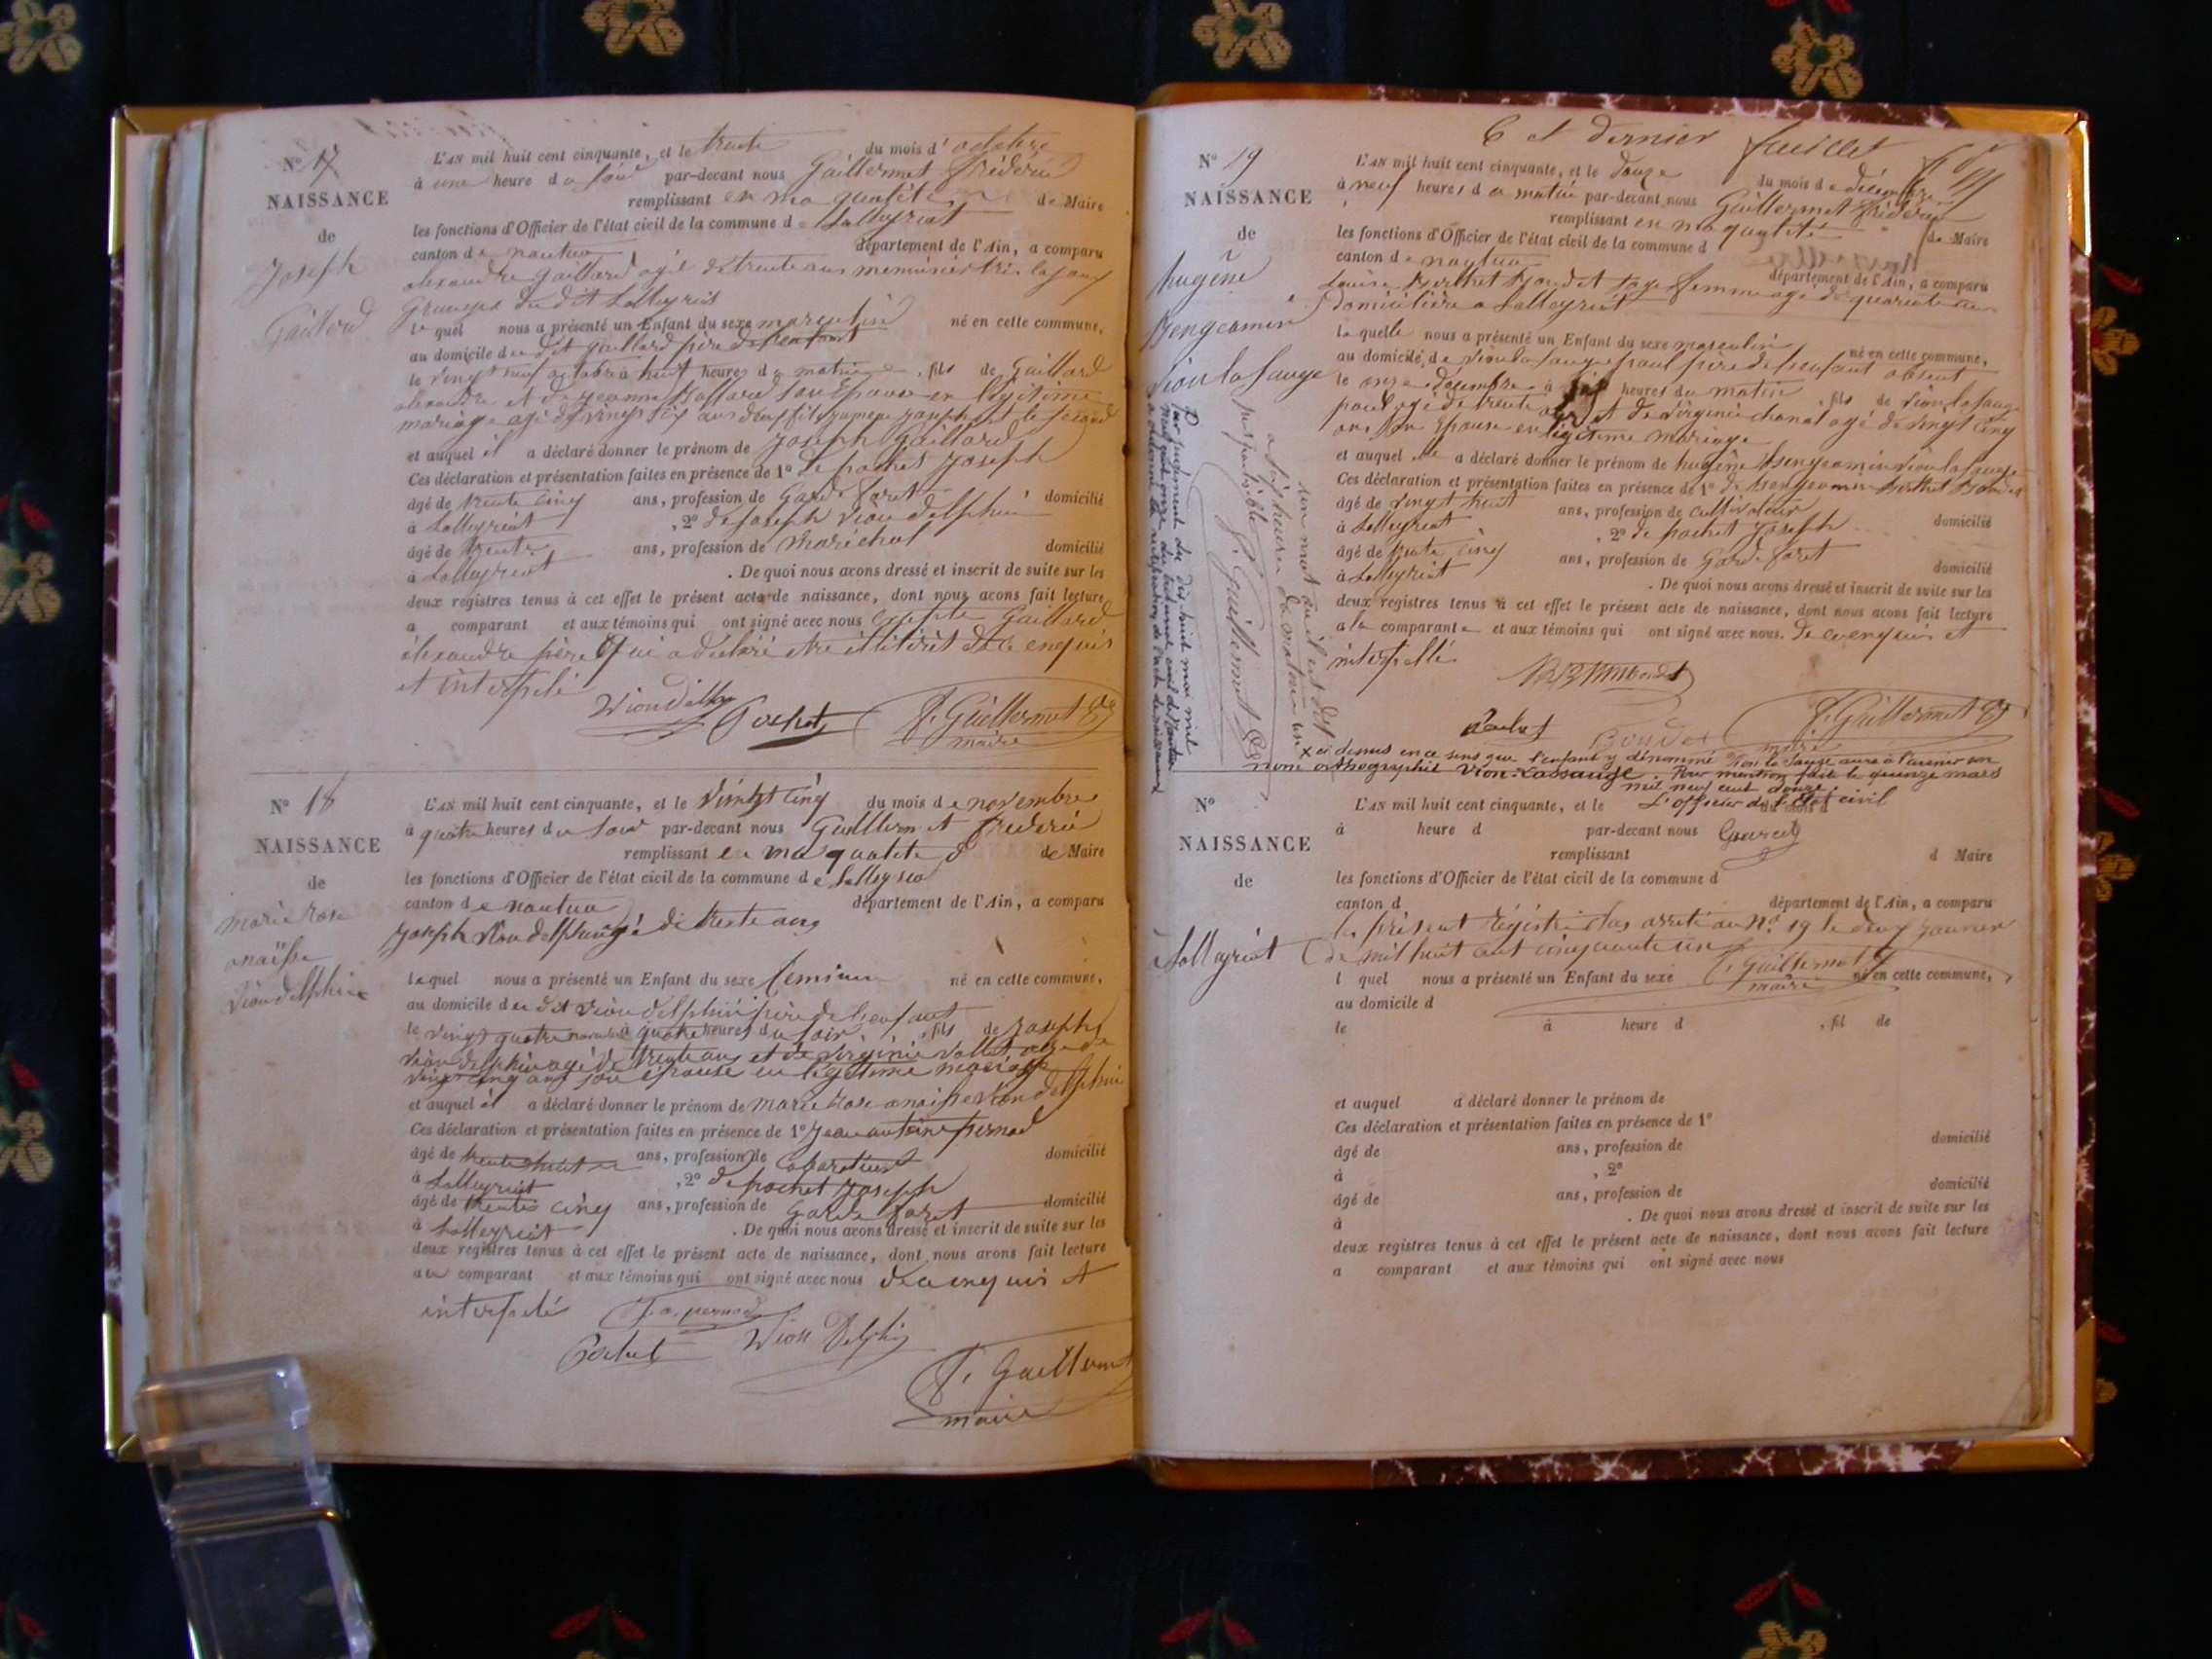 N° 17
NAISSANCE
de
Joseph
Gaillard
L'AN mil huit cent cinquante, et le trente du mois d'octobre
à une heure du soir par-devant nous Guillermet frédéric
remplissant en ma qualité de Maire
les fonctions d'Officier de l'état civil de la commune de Lalleyriat
canton de nantua département de l'Ain, a comparu
alexandre gaillard agé de trente ans
du dit Lalleyriat
lequel nous a présenté un Enfant du sexe masculin né en cette commune,
au domicile du dit gaillard père de l'enfant
le vingt neuf octobre à huit heures du matin, fils de Gaillard
alexandre et de jeanne son Epouse en légitime
mariage agé de vingt six ans
et auquel il a déclaré donner le prénom de Joseph Gaillard
Ces déclaration et présentation faites en présence de 1° de pochet Joseph
âgé de trente cinq ans, profession de Garde foret domicilié
à Lalleyriat, 2° de joseph viou delphin
âgé de trente ans, profession de maréchal domicilié
à Lalleyriat. De quoi nous avons dressé et inscrit de suite sur les
deux registres tenus à cet effet le présent acte de naissance, dont nous avons fait lecture
a comparant et aux témoins qui ont signé avec nous excepté Gaillard
alexandre père qui a déclaré etre illitéré de ce enquis
et interpelé
Viou Delphin Pochet f. Guillermet
maire
N° 18
NAISSANCE
de
marie rose
anaïsse
viou delphin
L'AN mil huit cent cinquante, et le vingt cinq du mois de novembre
à quatre heures du soir par-devant nous Guillermet frederic
remplissant en ma qualité de Maire
les fonctions d'Officier de l'état civil de la commune de Lalleyriat
canton de nantua département de l'Ain, a comparu
joseph viou delphin agé de trente ans
lequel nous a présenté un Enfant du sexe feminin né en cette commune,
au domicile du dit viou delphin père de l'enfant
le vingt quatre novembre à quatre heures du soir, fils de joseph
viou delphin agé de trente ans et de virginie vallet agée de
vingt cinq ans son épouse en légitime mariage
et auquel il a déclaré donner le prénom de marie rose anaisse viou delphin
Ces déclaration et présentation faites en présence de 1° jean antoine pernod
âgé de trente huit ans, profession de cabaretier domicilié
à Lalleyriat, 2° de pochet joseph
âgé de trente cinq ans, profession de Garde foret domicilié
à Lalleyriat. De quoi nous avons dressé et inscrit de suite sur les
deux registres tenus à cet effet le présent acte de naissance, dont nous avons fait lecture
au comparant et aux témoins qui ont signé avec nous de ce enquis et
interpelé J. a. pernod
Pochet Viou Delphin
f. Guillermet
maire
6 et dernier feuillet
N° 19
NAISSANCE
de
hugêne
Bengeamin
viou la sauge
L'AN mil huit cent cinquante, et le douze du mois de décembre
à neuf heures du matin par-devant nous Guillermet frédéric
remplissant en ma qualité de Maire
les fonctions d'Officier de l'état civil de la commune d
canton de nantua département de l'Ain, a comparu
Louise Berthet Bondet sage femme agé de quarante ans
domiciliée a Lalleyriat
laquelle nous a présenté un Enfant du sexe masculin né en cette commune,
au domicile de viou la sauge paul père de l'enfant absent
le onze décembre à six heures du matin, fils de viou la sauge
paul agé de trente ans et de virginie chanal agé de vingt cinq
ans son Epouse en légitime mariage
et auquel elle a déclaré donner le prénom de hugêne Bengeamin viou la sauge
Ces déclaration et présentation faites en présence de 1° de Bengeamin Berthet Bondet
âgé de vingt huit ans, profession de cultivateur domicilié
à Lalleyriat, 2° de pochet Joseph
âgé de trente cinq ans, profession de Garde foret domicilié
à Lalleyriat. De quoi nous avons dressé et inscrit de suite sur les
deux registres tenus à cet effet le présent acte de naissance, dont nous avons fait lecture
a la comparante et aux témoins qui ont signé avec nous. de ce enquis et
interpellé
Pochet Bondet f. Guillermet
maire
Par jugement du dix huit mai mil
du tribunal civil de Nantua
a ordonné la rectification de l'acte de naissance
x ci dessus en ce sens que l'enfant y dénommé Viou la Sauge aura à l'avenir son
nom orthographié Vion-Lassauge. Pour mention faite le quinze mars
mil neuf cent douze.
L'officier de l'état civil
un mot au il est dit
a six heures du matin un
f. Guillermet
N°
NAISSANCE
de
L'AN mil huit cent cinquante, et le du mois d
à heure d par-devant nous
remplissant d Maire
les fonctions d'Officier de l'état civil de la commune d
canton d département de l'Ain, a comparu
le présent régistre clos arreté au N° 19 le deux janvier
Lalleyriat de mil huit cent cinquante un
f. Guillermet
maire
l quel nous a présenté un Enfant du sexe né en cette commune,
au domicile d
le à heure d, fil de
et auquel a déclaré donner le prénom de
Ces déclaration et présentation faites en présence de 1°
âgé de ans, profession de domicilié
à, 2°
âgé de ans, profession de domicilié
à. De quoi nous avons dressé et inscrit de suite sur les
deux registres tenus à cet effet le présent acte de naissance, dont nous avons fait lecture
a comparant et aux témoins qui ont signé avec nous